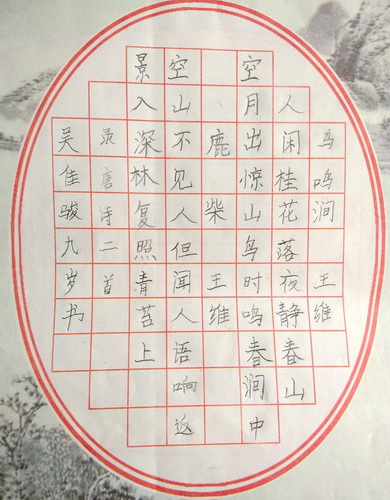 鸟鸣涧 王维
人闲桂花落夜静春山
空月出惊山鸟时鸣春涧中
鹿柴 王维
空山不见人但闻人语响返
景入深林复照青苔上
录唐诗二首
吴佳骏九岁书